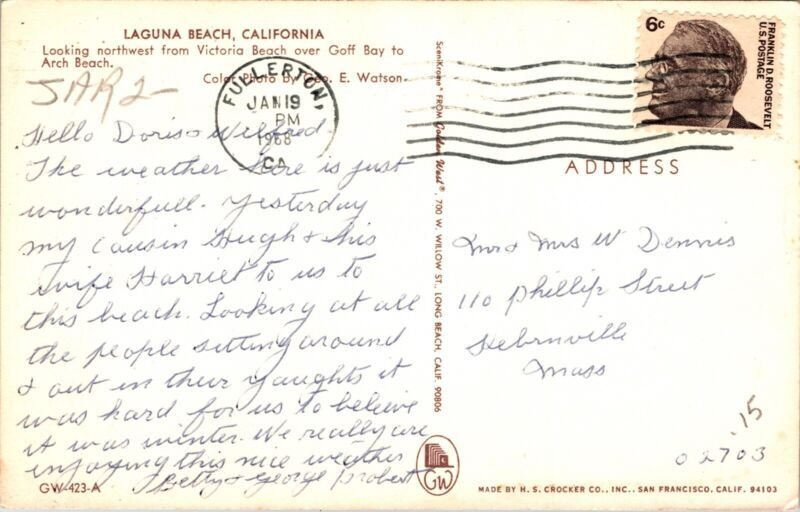 LAGUNA BEACH, CALIFORNIA
Looking northwest from Victoria Beach over Goff Bay to
Arch Beach.
Color Photo by Geo. E. Watson
SAR 2-
Hello Doris & Wilfred
The weather here is just
wonderfull. Yesterday
my cousin Hugh & his
wife Harriet to us to
this beach. Looking at all
the people sitting around
& out in their yaughts it
was hard for us to believe
it was winter. We really are
enjoying this nice weather
Betty & George Probert
GW-423-A
FULLERTON,
JAN 19
PM
1968
CA
SceniKrome" FROM Golden West®, 700 W. WILLOW ST., LONG BEACH, CALIF. 90806
GW
6c
FRANKLIN D. ROOSEVELT
U.S. POSTAGE
ADDRESS
Mr & Mrs W Dennis
110 Phillip Street
Hebrnville
Mass
.15
02703
MADE BY H. S. CROCKER CO., INC., SAN FRANCISCO, CALIF. 94103